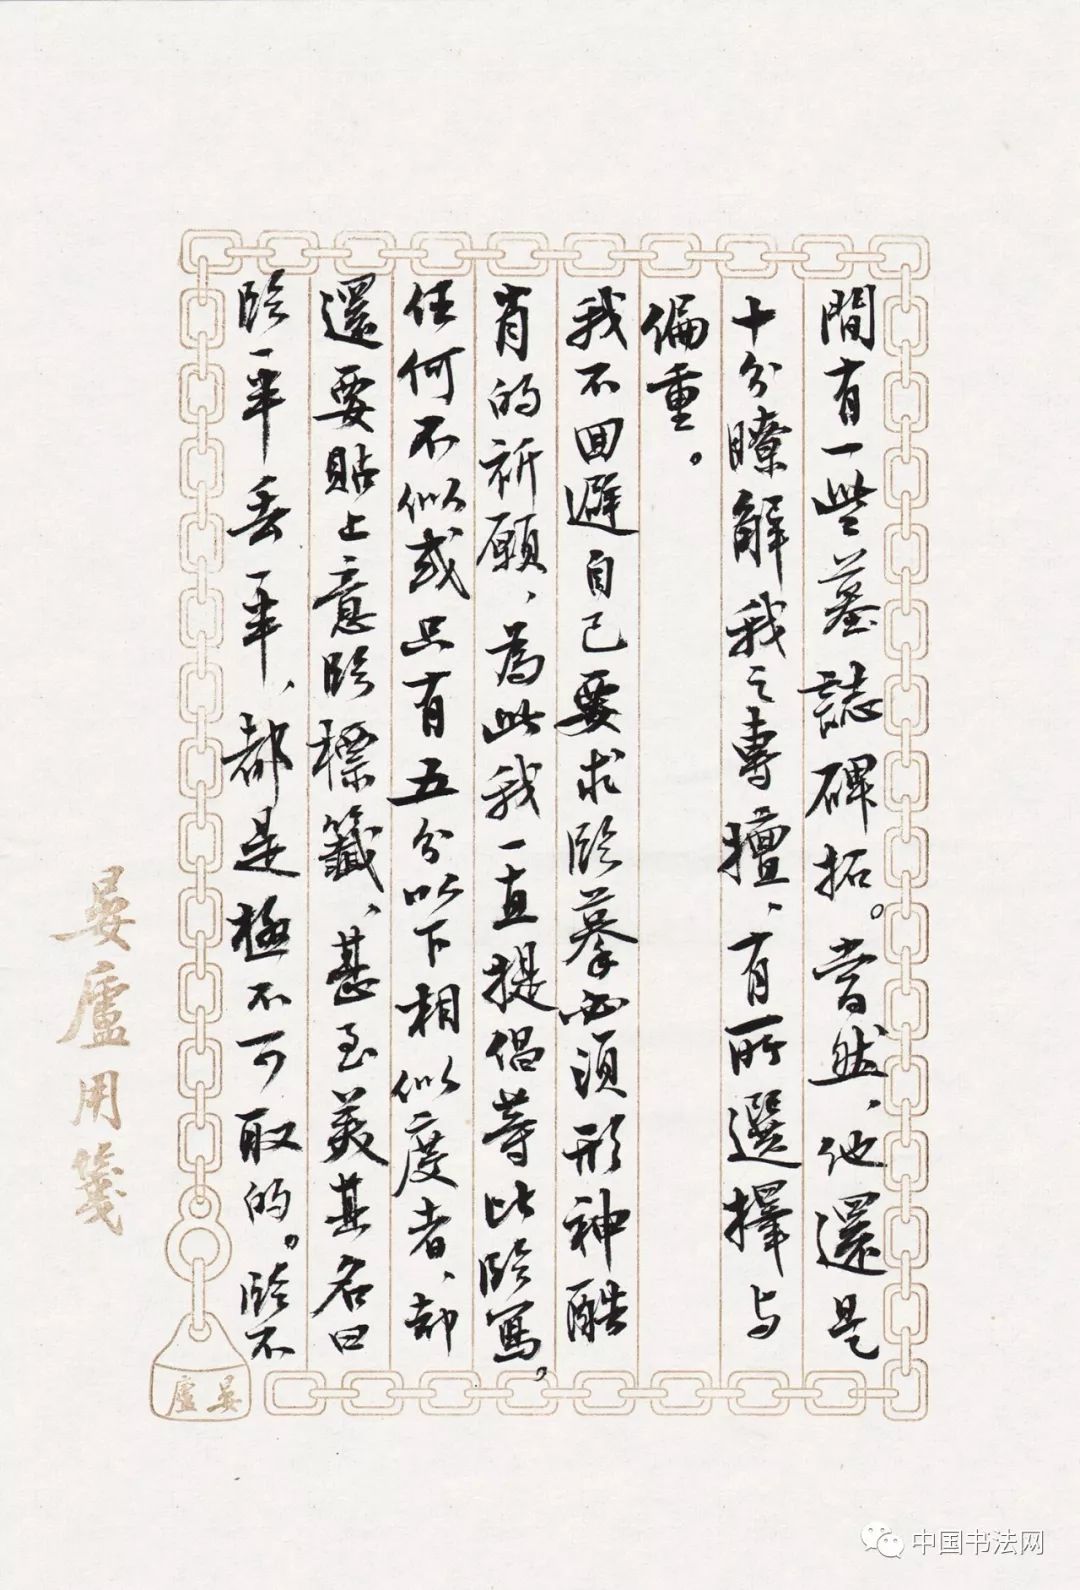 間有一些墓誌碑拓。當然、他還是
十分瞭解我之專擅、有所選擇与
偏重。
我不回避自己要求臨摹必須形神酷
肖的祈願、為此我一直提倡等比臨寫。
任何不似或只有五分以下相似度者、却
還要貼上意臨標籤、甚至美其名曰
臨一半丢一半、都是極不可取的。臨不
晏廬用箋
晏廬
中国书法网